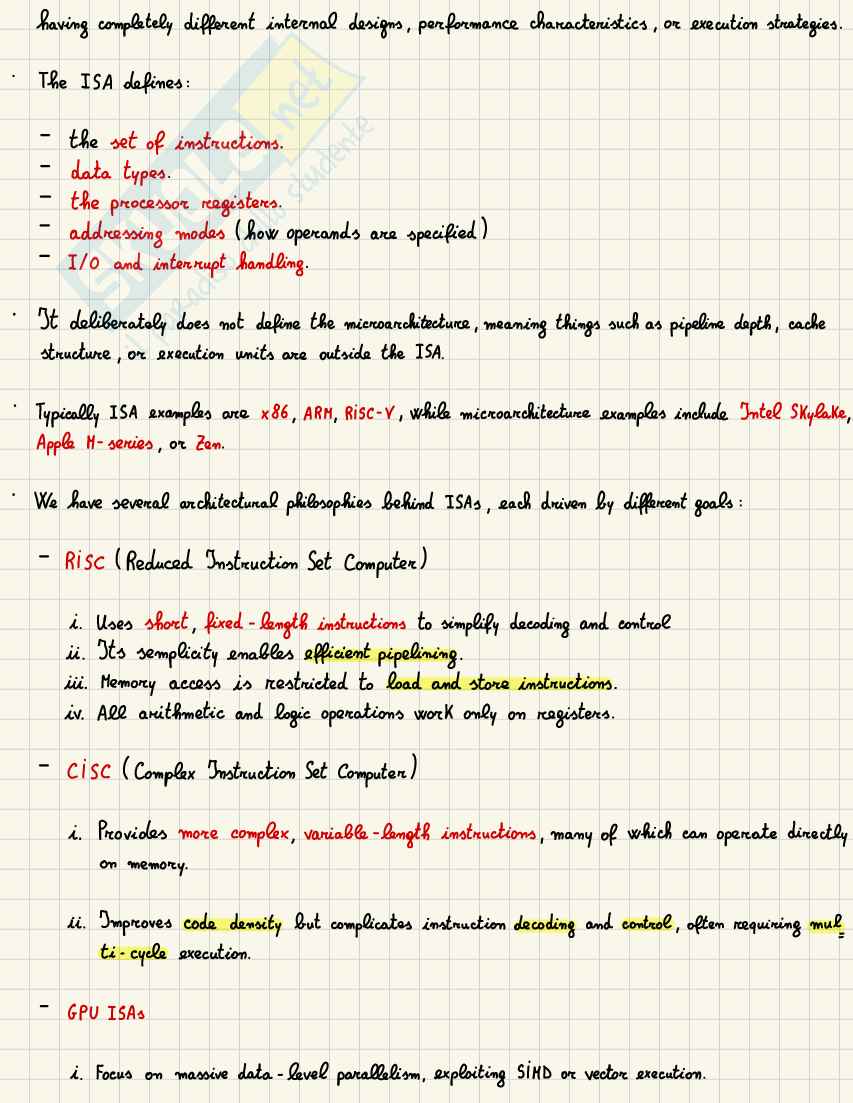 having completely different internal designs, performance characteristics, or execution strategies.
· The ISA defines:
- the set of instructions.
- data types.
- the processor registers.
- addressing modes (how operands are specified)
- I/O and interrupt handling.
· It deliberately does not define the microarchitecture, meaning things such as pipeline depth, cache
structure, or execution units are outside the ISA.
· Typically ISA examples are x86, ARM, RISC-V, while microarchitecture examples include Intel Skylake,
Apple M-series, or Zen.
· We have several architectural philosophies behind ISAs, each driven by different goals:
- RISC (Reduced Instruction Set Computer)
i. Uses short, fixed-length instructions to simplify decoding and control
ii. Its semplicity enables efficient pipelining.
iii. Memory access is restricted to load and store instructions.
iv. All arithmetic and logic operations work only on registers.
- CISC (Complex Instruction Set Computer)
i. Provides more complex, variable-length instructions, many of which can operate directly
on memory.
ii. Improves code density but complicates instruction decoding and control, often requiring mul=
ti-cycle execution.
- GPU ISAs
i. Focus on massive data-level parallelism, exploiting SIMD or vector execution.
SKUOLA.net